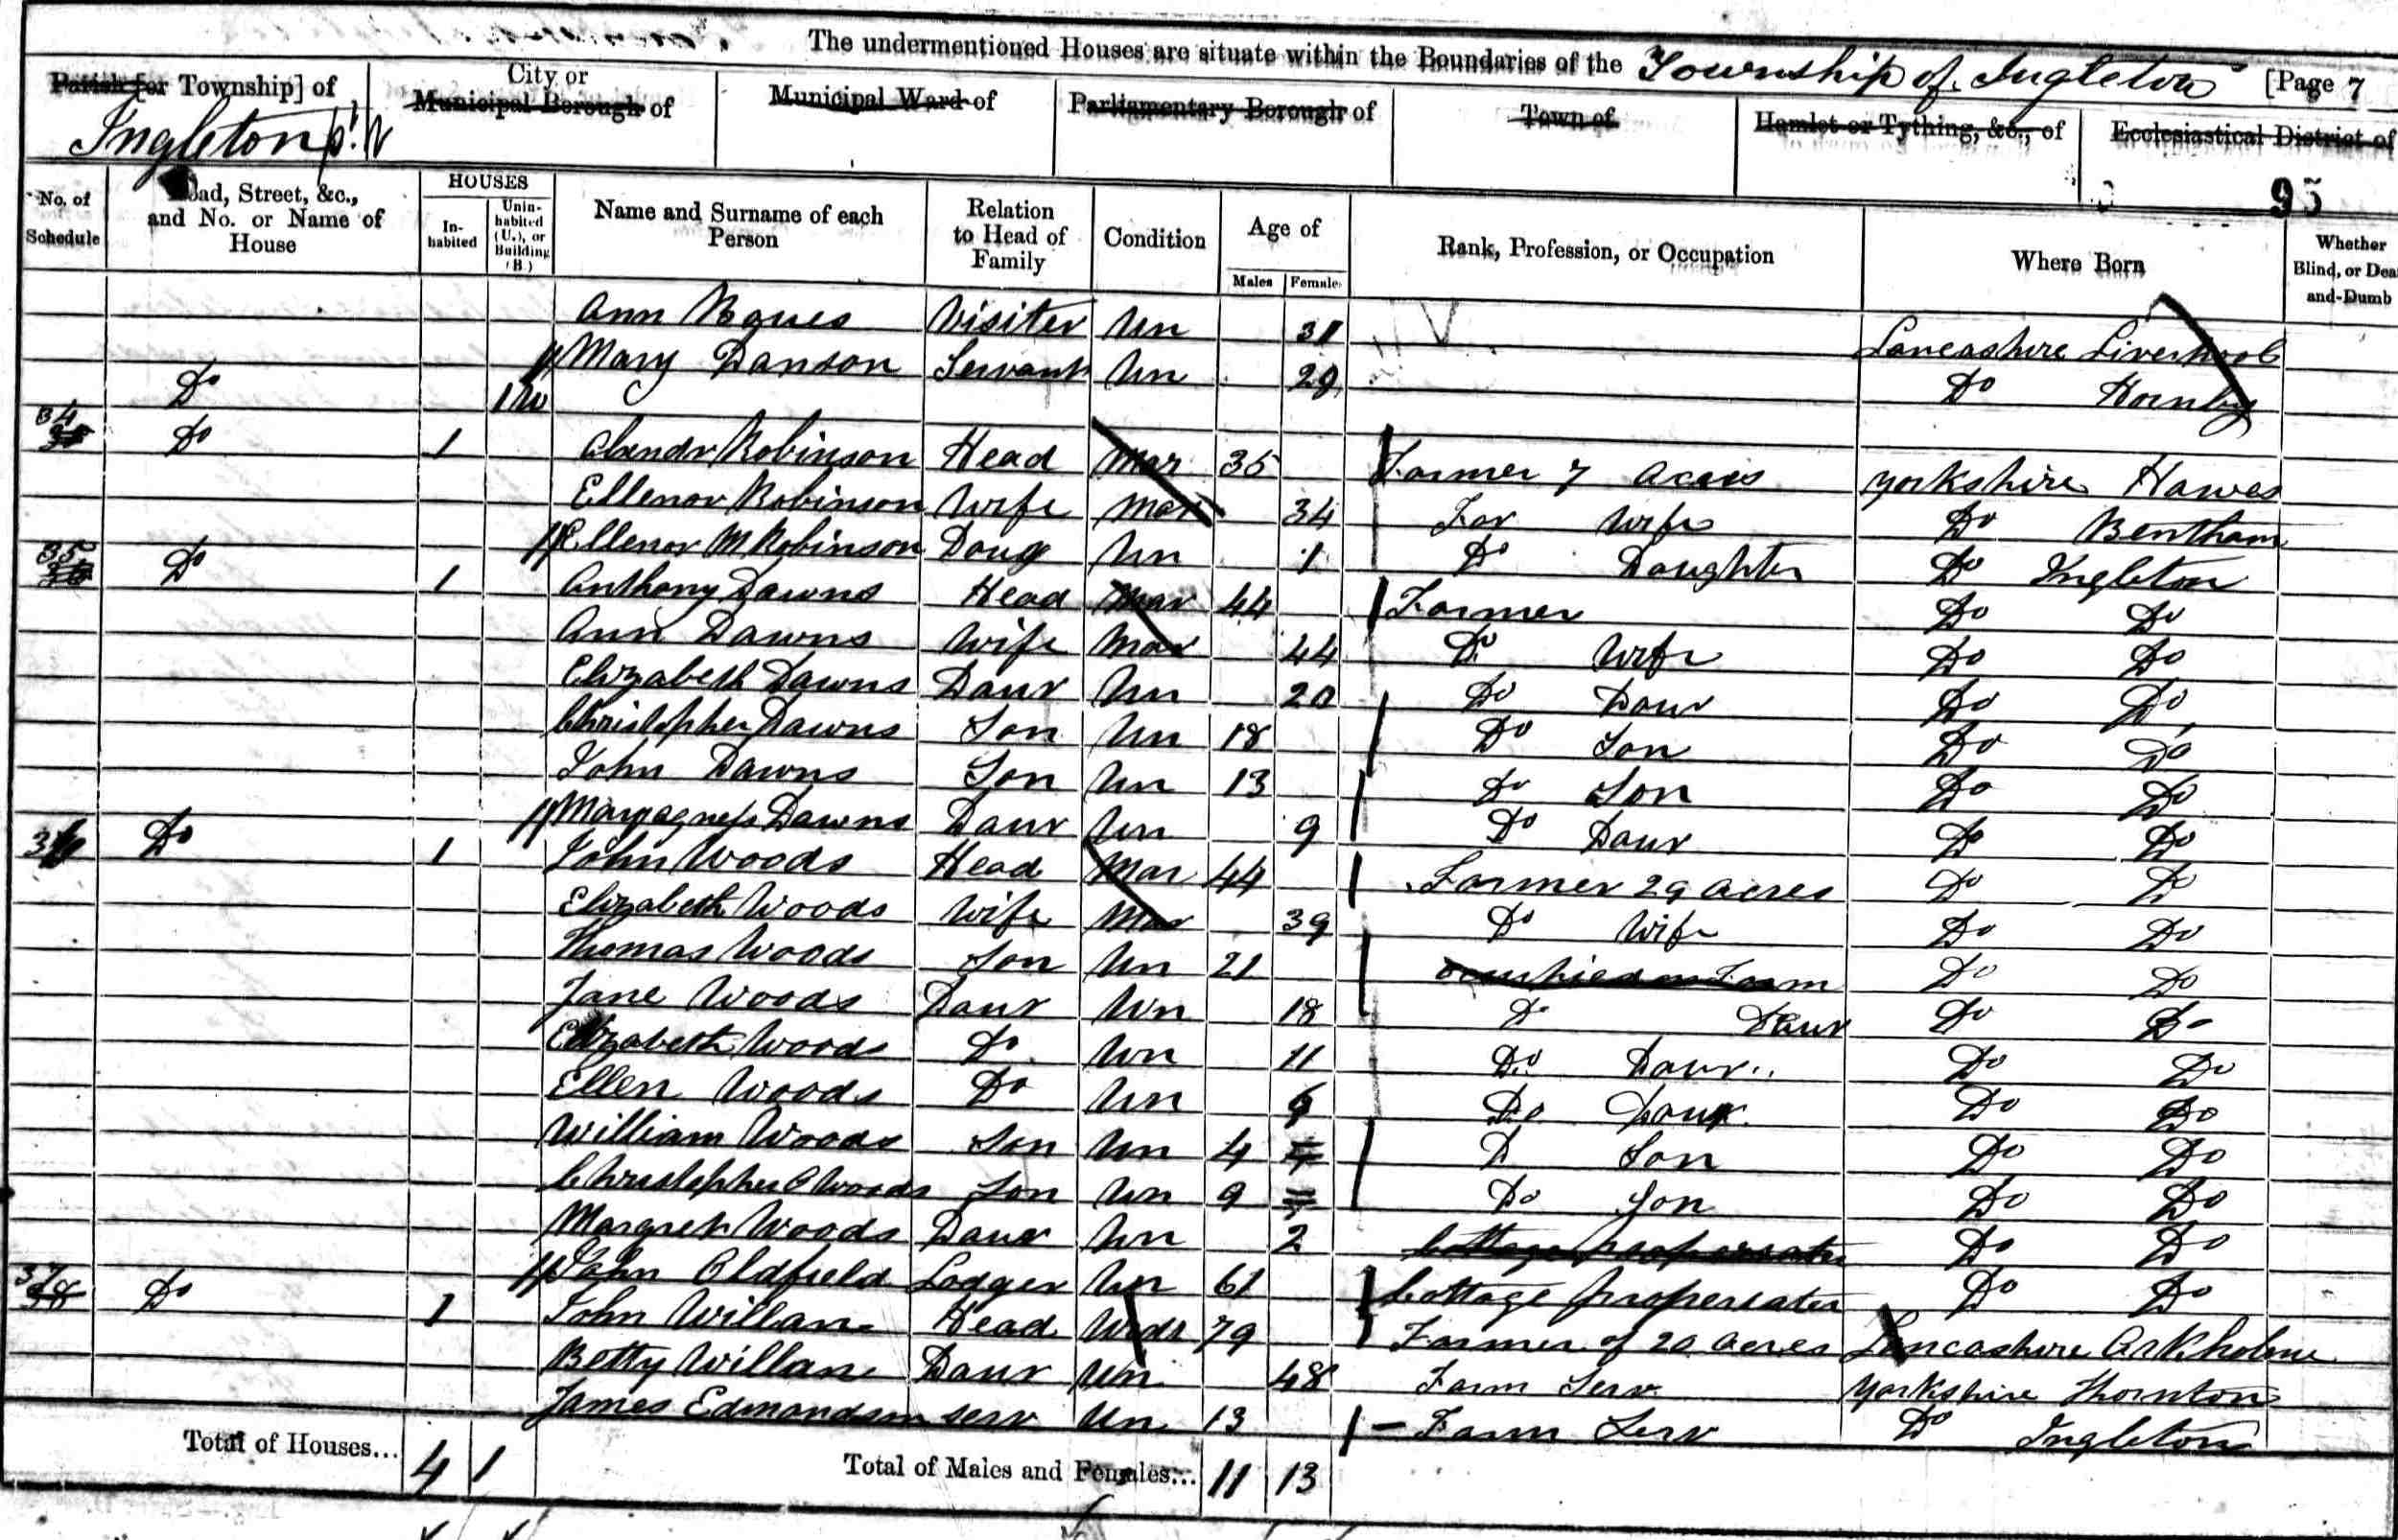 The undermentioned Houses are situate within the Boundaries of the Township of Ingleton [Page 7
Parish [or Township] of
Ingleton pt.
City or Municipal Borough of
Municipal Ward of
Parliamentary Borough of
Town of
Hamlet or Tything, &c., of
Ecclesiastical District of
95
No. of Schedule
Road, Street, &c., and No. or Name of House
HOUSES
In-habited
Unin-habited (U.), or Building (B.)
Name and Surname of each Person
Relation to Head of Family
Condition
Age of
Males
Females
Rank, Profession, or Occupation
Where Born
Whether Blind, or Deaf-and-Dumb
Ann Visiter Un 31 Lancashire Liverpool
Mary Danson Servant Un 29 Do Hornby
Do 1 U
34 Do 1 Robinson Head Mar 35 Farmer 7 Acres Yorkshire Hawes
Ellenor Robinson Wife Mar 34 Far Wife Do Bentham
Ellenor M Robinson Daug Un 1 Do Daughter Do Ingleton
35 Do 1 Anthony Dawns Head Mar 44 Farmer Do Do
Ann Dawns Wife Mar 44 Do Wife Do Do
Elizabeth Dawns Daur Un 20 Do Daur Do Do
Christopher Dawns Son Un 18 Do Son Do Do
John Dawns Son Un 13 Do Son Do Do
Mary agness Dawns Daur Un 9 Do Daur Do Do
36 Do 1 John Woods Head Mar 44 Farmer 29 Acres Do Do
Elizabeth Woods Wife Mar 39 Do Wife Do Do
Thomas Woods Son Un 21 occupied on Farm Do Do
Jane Woods Daur Un 18 Do Daur Do Do
Elizabeth Woods Do Un 11 Do Daur Do Do
Ellen Woods Do Un Do Daur Do Do
William Woods Son Un 4 Do Son Do Do
Christopher Woods Son Un 9 Do Son Do Do
Margret Woods Daur Un 2 Do Do
John Oldfield Lodger Un 61 Cottage properiater Do Do
37 Do 1 John Willan Head Widr 79 Farmer of 20 Acres Lancashire Arkholme
Betty Willan Daur Un 48 Farm Serv Yorkshire Thornton
James Edmondson Serv Un 13 Farm Serv Do Ingleton
Total of Houses... 4 1
Total of Males and Females... 11 13